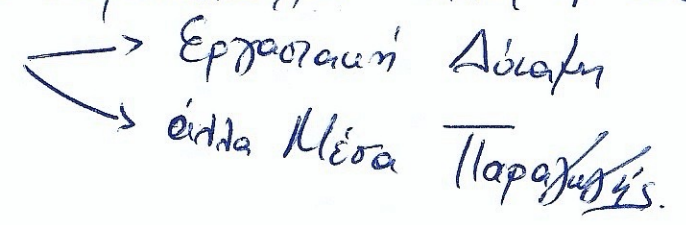 → Εργασιακή Δύναμη
→ άλλα Μέσα Παραγωγής.